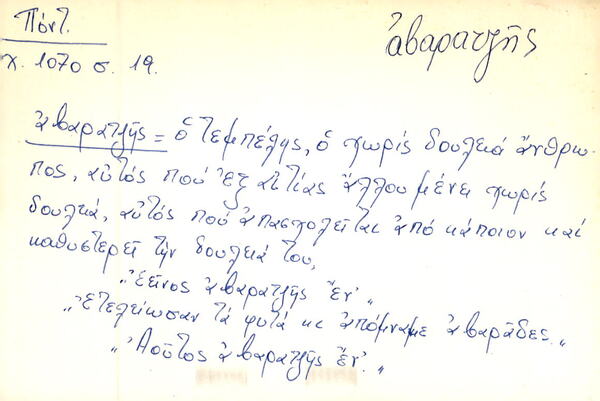 Πόντ.
ἀβαρατζῆς
χ. 1070 σ. 19.
ἀβαρατζῆς = ὁ τεμπέλης, ὁ χωρίς δουλειά ἄνθρω-
πος, αὐτός πού ἐξ αἰτίας ἄλλου μένει χωρίς
δουλειά, αὐτός πού ἀπασχολεῖται ἀπό κάποιον καί
καθυστερεῖ τήν δουλειά του,
„Ἐεῖνος ἀβαρατζῆς ἔν'„
„Ἐτελείωσαν τά φυτά κι ἀπόμναμε ἀβαρᾶδες„
„Ἀοῦτος ἀβαρατζῆς ἔν'.„